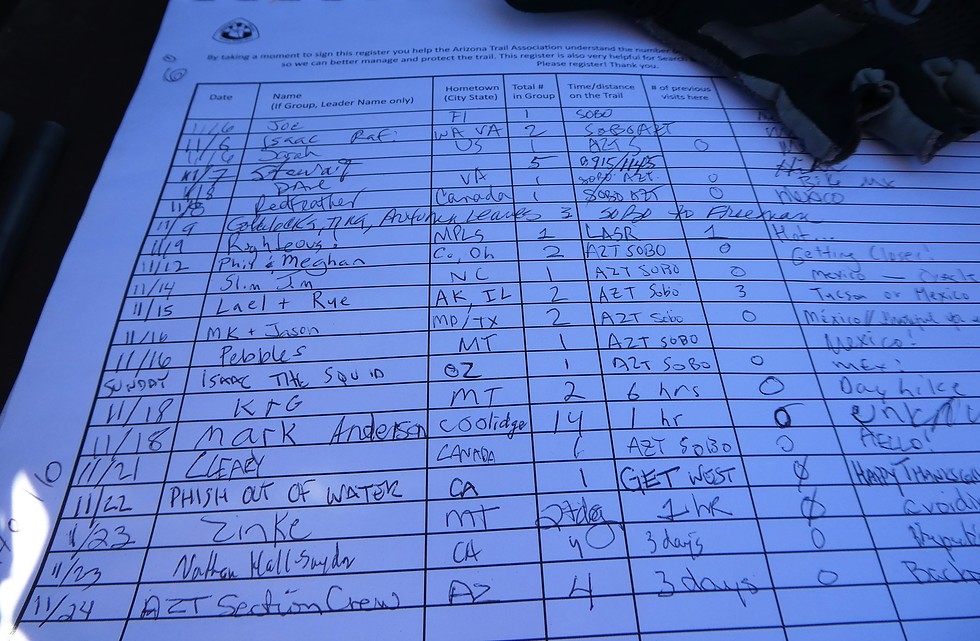 By taking a moment to sign this register you help the Arizona Trail Association understand the number
so we can better manage and protect the trail. This register is also very helpful for Search
Please register! Thank you.
Date Name (If Group, Leader Name only) Hometown (City State) Total # in Group Time/distance on the Trail # of previous visits here
11/6 Joe Fl 1 SOBO
11/5 Isaac WA VA 2 SOBO AZT
11/6 Sarah US 1 AZT S 0
11/7 Stewart 5 0915/1145
DAVE VA 1 SOBO AZT 0
11/8 Redfeather Canada 1 SOBO AZT 0 MEXICO
11/9 TING, Autumn Leaves 3 SOBO to Freeman
11/9 Righteous! MPLS 1 LASR 1 Hot...
11/12 Phil & Meghan Co, Oh 2 AZT SOBO 0 Getting Closer!
11/14 Slim Jim NC 1 AZT SOBO 0 Mexico — Oracle
11/15 Lael + Rue AK, IL 2 AZT Sobo 3 Tucson or Mexico
11/16 MK + Jason MD/TX 2 AZT Sobo 0 México//
11/16 Pebbles MT 1 AZT SOBO Mexico!
SUNDAY ISAAC THE SQUID OZ 1 AZT SOBO 0 MEX!
11/18 K+G MT 2 6 hrs 0 Day hike
11/18 Mark Anderson Coolidge 14 1 hr 0
11/21 CLEARY CANADA 1 AZT SOBO 0 HELLO!
11/22 PHISH OUT OF WATER CA 1 GET WEST 0 HAPPY THANKSG
11/23 Zinke MT 1 HR 0 avoid
11/23 Nathan CA 3 days 0
11/24 AZT Section Crew AZ 4 3 days 0 Back
10